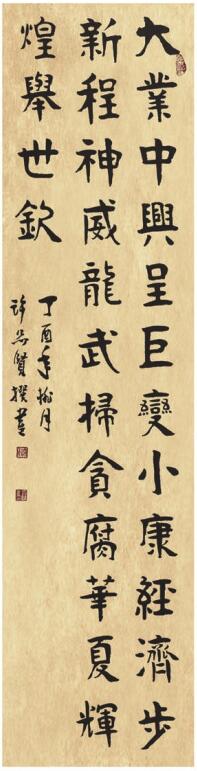 大業中興呈巨變小康經濟步
新程神威龍武掃貪腐華夏輝
煌舉世欽
丁酉年
許